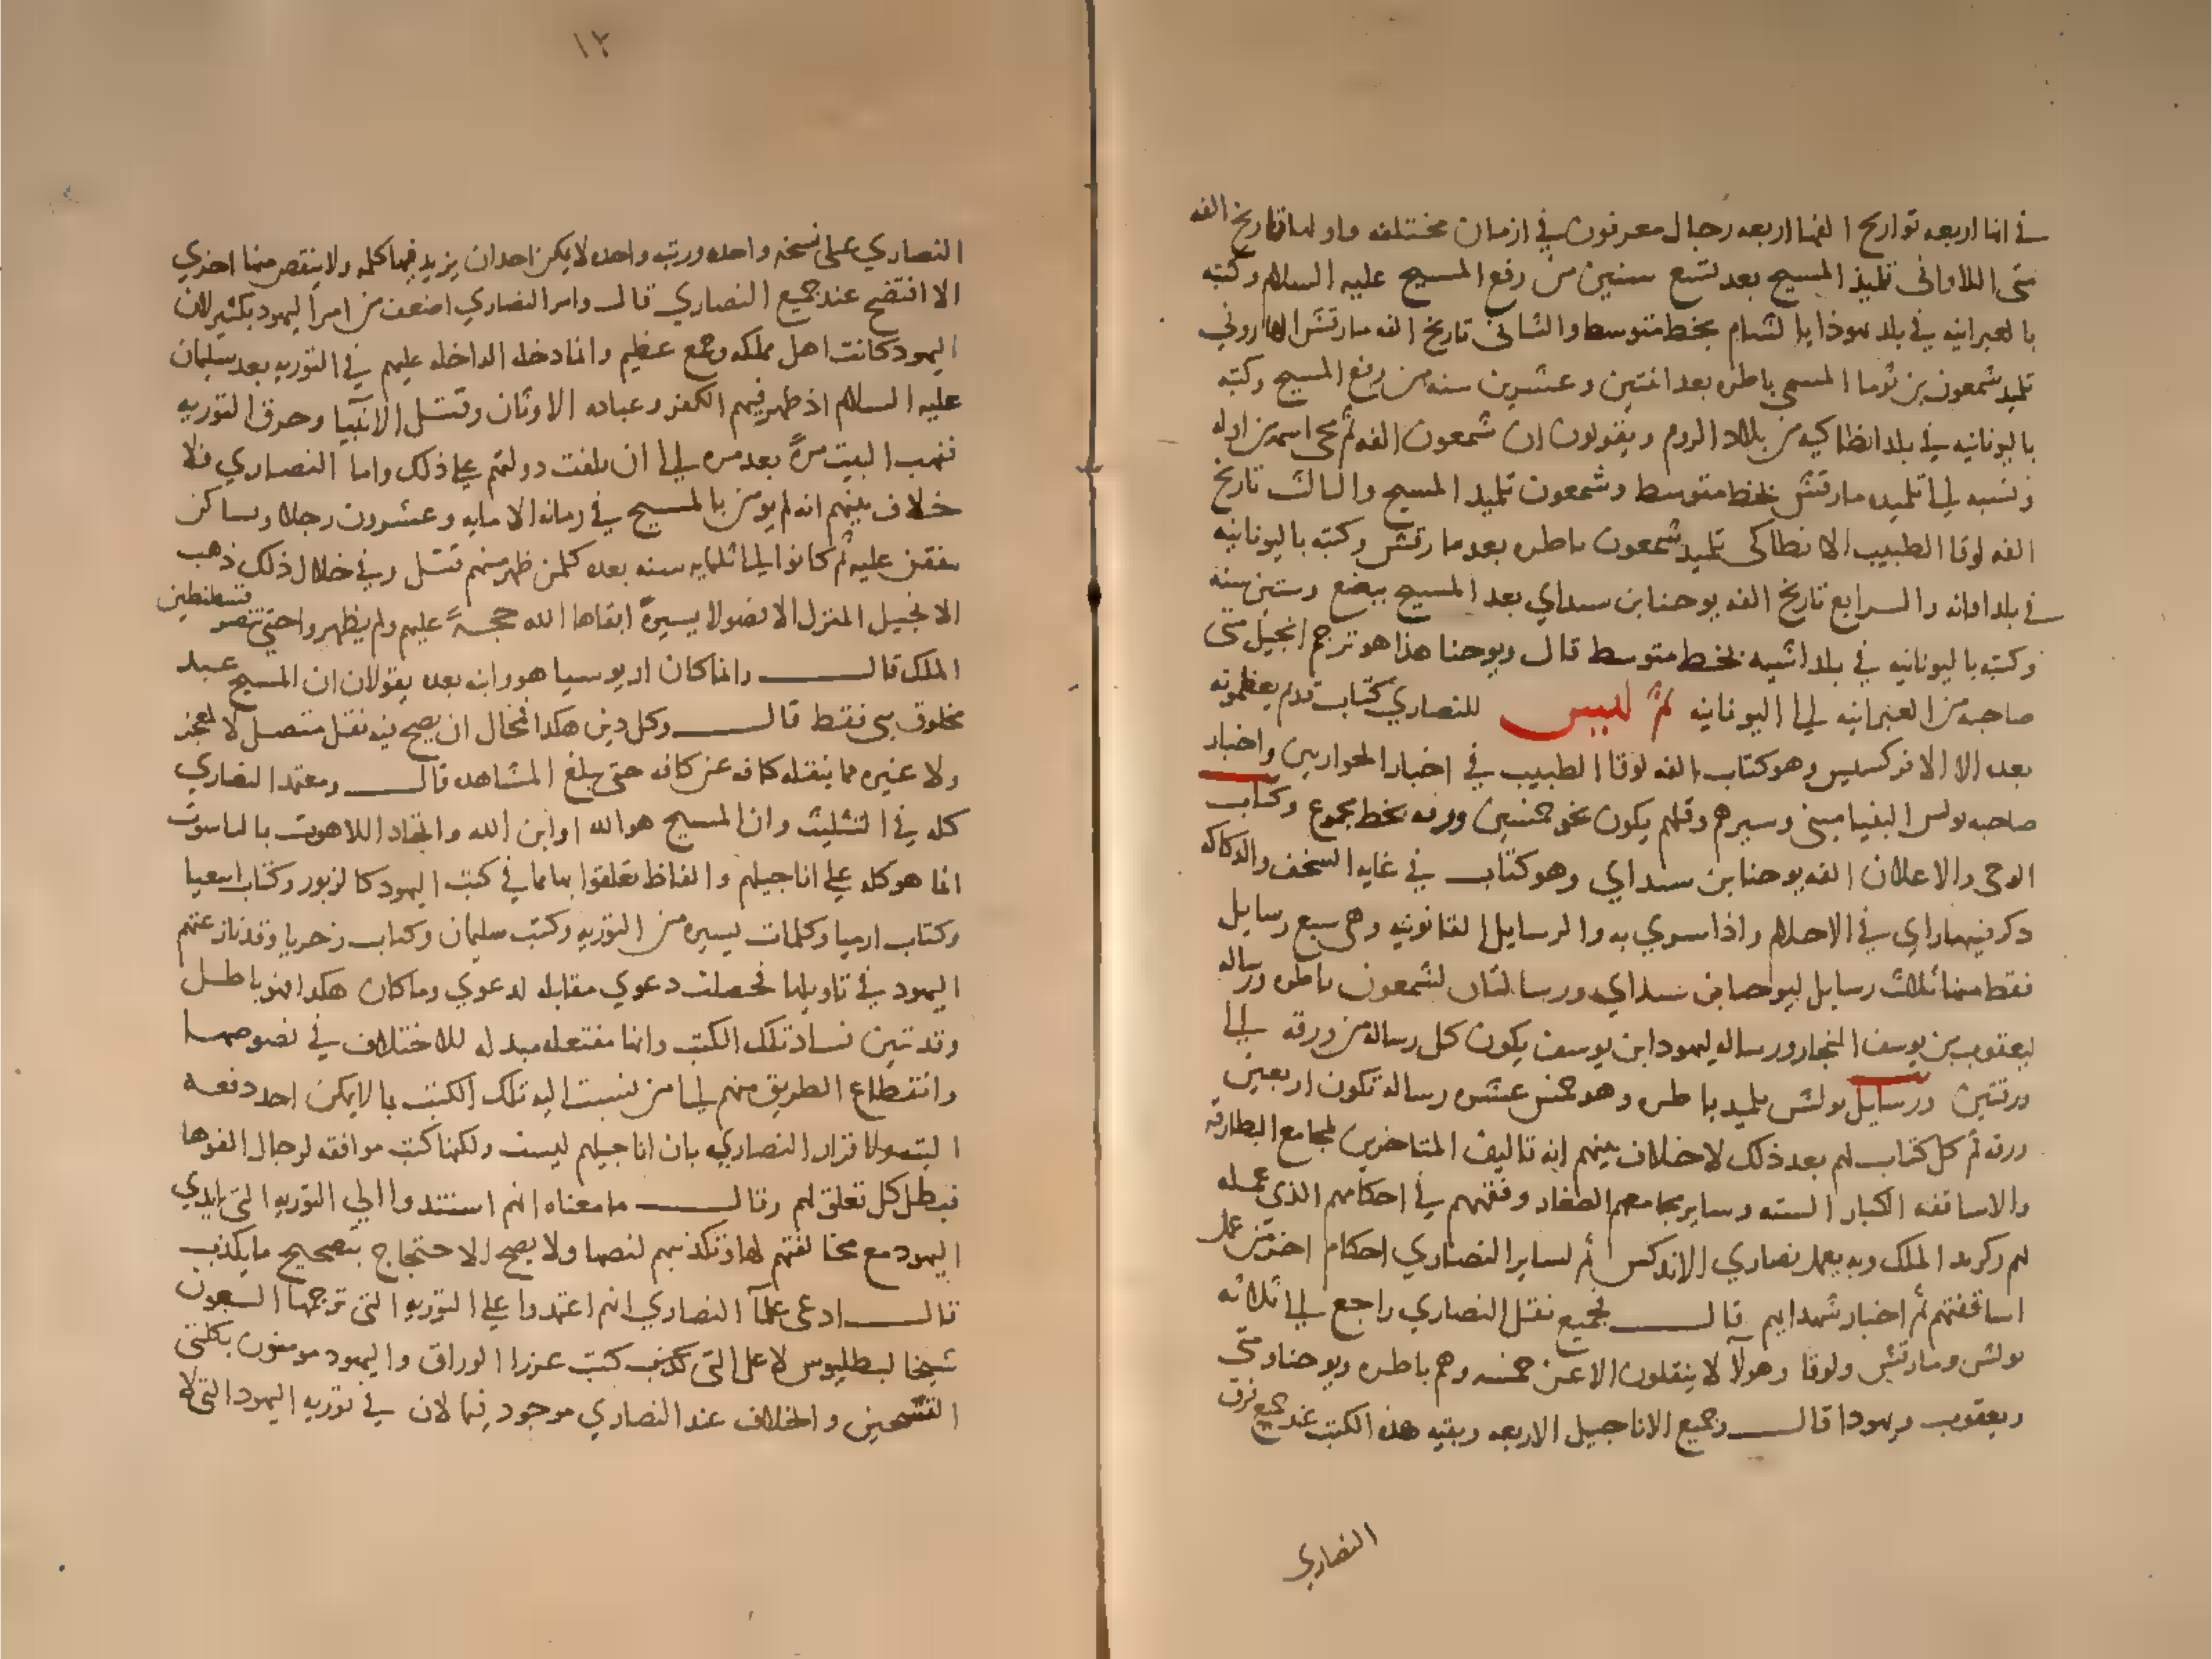 في انها اربعه تواريخ الفها اربعه رجال معرفون في ازمان مختلفه فاولها تاريخ الفه
متى اللاوانى تلميذ المسيح بعد تسع سنين من رفع المسيح عليه السلام وكتبه
بالعبرانيه في بلد يهوذا بالشام بخط متوسط والثانى تاريخ الفه مارقش الهاروني
تلميد شمعون بن توما المسمى باطره بعد اثنتين وعشرين سنه من رفع المسيح وكتبه
باليونانيه في بلد انطاكيه من بلاد الروم ويقولون ان شمعون الفه ثم محى اسمه من اوله
ونسبه الى تلميده مارقش بخط متوسط وشمعون تلميد المسيح والثالث تاريخ
الفه لوقا الطبيب الانطاكى تلميد شمعون باطره بعد مارقش وكتبه باليونانيه
في بلد اقانه والرابع تاريخ الفه يوحنا ابن سبداي بعد المسيح ببضع وستين سنه
وكتبه باليونانيه في بلد اشيه بخط متوسط قال ويوحنا هذا هو ترجم انجيل متى
صاحبه من العبرانيه الى اليونانيه ثم ليس للنصاري كتاب قديم يعظمونه
بعد الا الافركسيس وهو كتاب الفه لوقا الطبيب في اخبار الحواريين واخبار
صاحبه بولس البنياميني وسيرهم وقتلهم يكون نحو خمسين ورقه بخط مجموع وكتاب
الوحى والاعلان الفه يوحنا بن سبداي وهو كتاب في غايه السخف والركاكه
ذكر فيه ما راي في الاحلام واذا سري به والرسايل القانونيه وهى سبع رسايل
فقط منها ثلاث رسايل ليوحنا بن سبداي ورسالتان لشمعون باطره ورساله
ليعقوب بن يوسف النجار ورساله ليهودا بن يوسف يكون كل رساله من ورقه الى
ورقتين ورسايل بولش تلميد باطره وهو خمس عشره رساله تكون اربعين
ورقه ثم كل كتاب لهم بعد ذلك لا خلاف بينهم انه تاليف المتاخرين لمجامع البطارقه
والاساقفه الكبار السته وساير مجامعهم الصغار وفقههم في احكامهم الذى عمله
لهم ركريد الملك وبه يعمل نصاري الاندلس ثم لساير النصاري احكام اخر من عمل
اساقفتهم ثم اخبار شهدايهم قال فجميع نقل النصاري راجع الى ثلاثه
بولش ومارقش ولوقا وهولا لا ينقلون الا عن خمسه وهم باطره ويوحنا ومتى
ويعقوب ويهودا قال وجميع الاناجيل الاربعه وبقيه هذه الكتب عند جميع فرق
النصاري
١٢
النصاري على نسخه واحده ورتبه واحده لا يمكن احد ان يزيد فيها كلمه ولا ينقص منها اخري
الا افتضح عند جميع النصاري قال وامر النصاري اضعف من امر اليهود بكثير لان
اليهود كانت اهل مملكه وجمع عظيم وانما دخله الداخله عليهم في التوريه بعد سليمان
عليه السلام اذ ظهر فيهم الكفر وعباده الاوثان وقتل الانبيا وحرق التوريه
ونهب البيت مرةً بعد مره الى ان تلفت دولتهم على ذلك واما النصاري فلا
خلاف بينهم انه لم يومن بالمسيح في زمانه الا مايه وعشرون رجلا ونسا كن
ينفقن عليه ثم كانوا الى ثلثمايه سنه بعده كلمن ظهر منهم قتل وفي خلال ذلك ذهب
الانجيل المنزل الا فصولا يسيرةً ابقاها الله حجــةً عليهم ولم يظهروا حتى تنصر قسطنطين
الملك قال وانما كان اريوسيا هو وابنه بعده يقولان ان المسيح عبد
مخلوق نبى فقط قال وكل دين هكذا فمحال ان يصح فيه نقل متصل لا معجز
ولا غيره مما ينقله كافه عن كافه حتى يبلغ المشاهده قال ومعتمد النصاري
كله في التثليث وان المسيح هو الله او ابن الله واتحاد اللاهوت بالناسوت
انما هو كله على اناجيلهم والفاظ تعلقوا بها مما في كتب اليهود كالزبور وكتاب اشعيا
وكتاب ارميا وكلمات يسيره من التوريه وكتب سليمان وكتاب زخريا وقد نازعتهم
اليهود في تاويلها فحصلت دعوي مقابله لدعوي وما كان هكذا فهو باطل
وقد تبين فساد تلك الكتب وانها مفتعله مبدله للاختلاف في نصوصها
وانقطاع الطريق منهم الى من نسبت اليه تلك الكتب بما لا يمكن احد دفعه
البته ولاقرار النصاري بان اناجيلهم ليست ولكنها كتب موافقه لرجال الفوها
فبطل كل تعلق لهم وقال ما معناه انهم استندوا الى التوريه التى بايدي
اليهود مع مخالفتهم لها وتكذيبهم لنصها ولا يصح الاحتجاج بتصحيح ما يكذب
قال ادعى علمآ النصاري انهم اعتمدوا على التوريه التى ترجمها السبعون
شيخا لبطليوس لا على التى كتب عزرا الوراق واليهود مومنون بكلتى
النسختين والخلاف عند النصاري موجود فيها لان في توريه اليهود التى لا